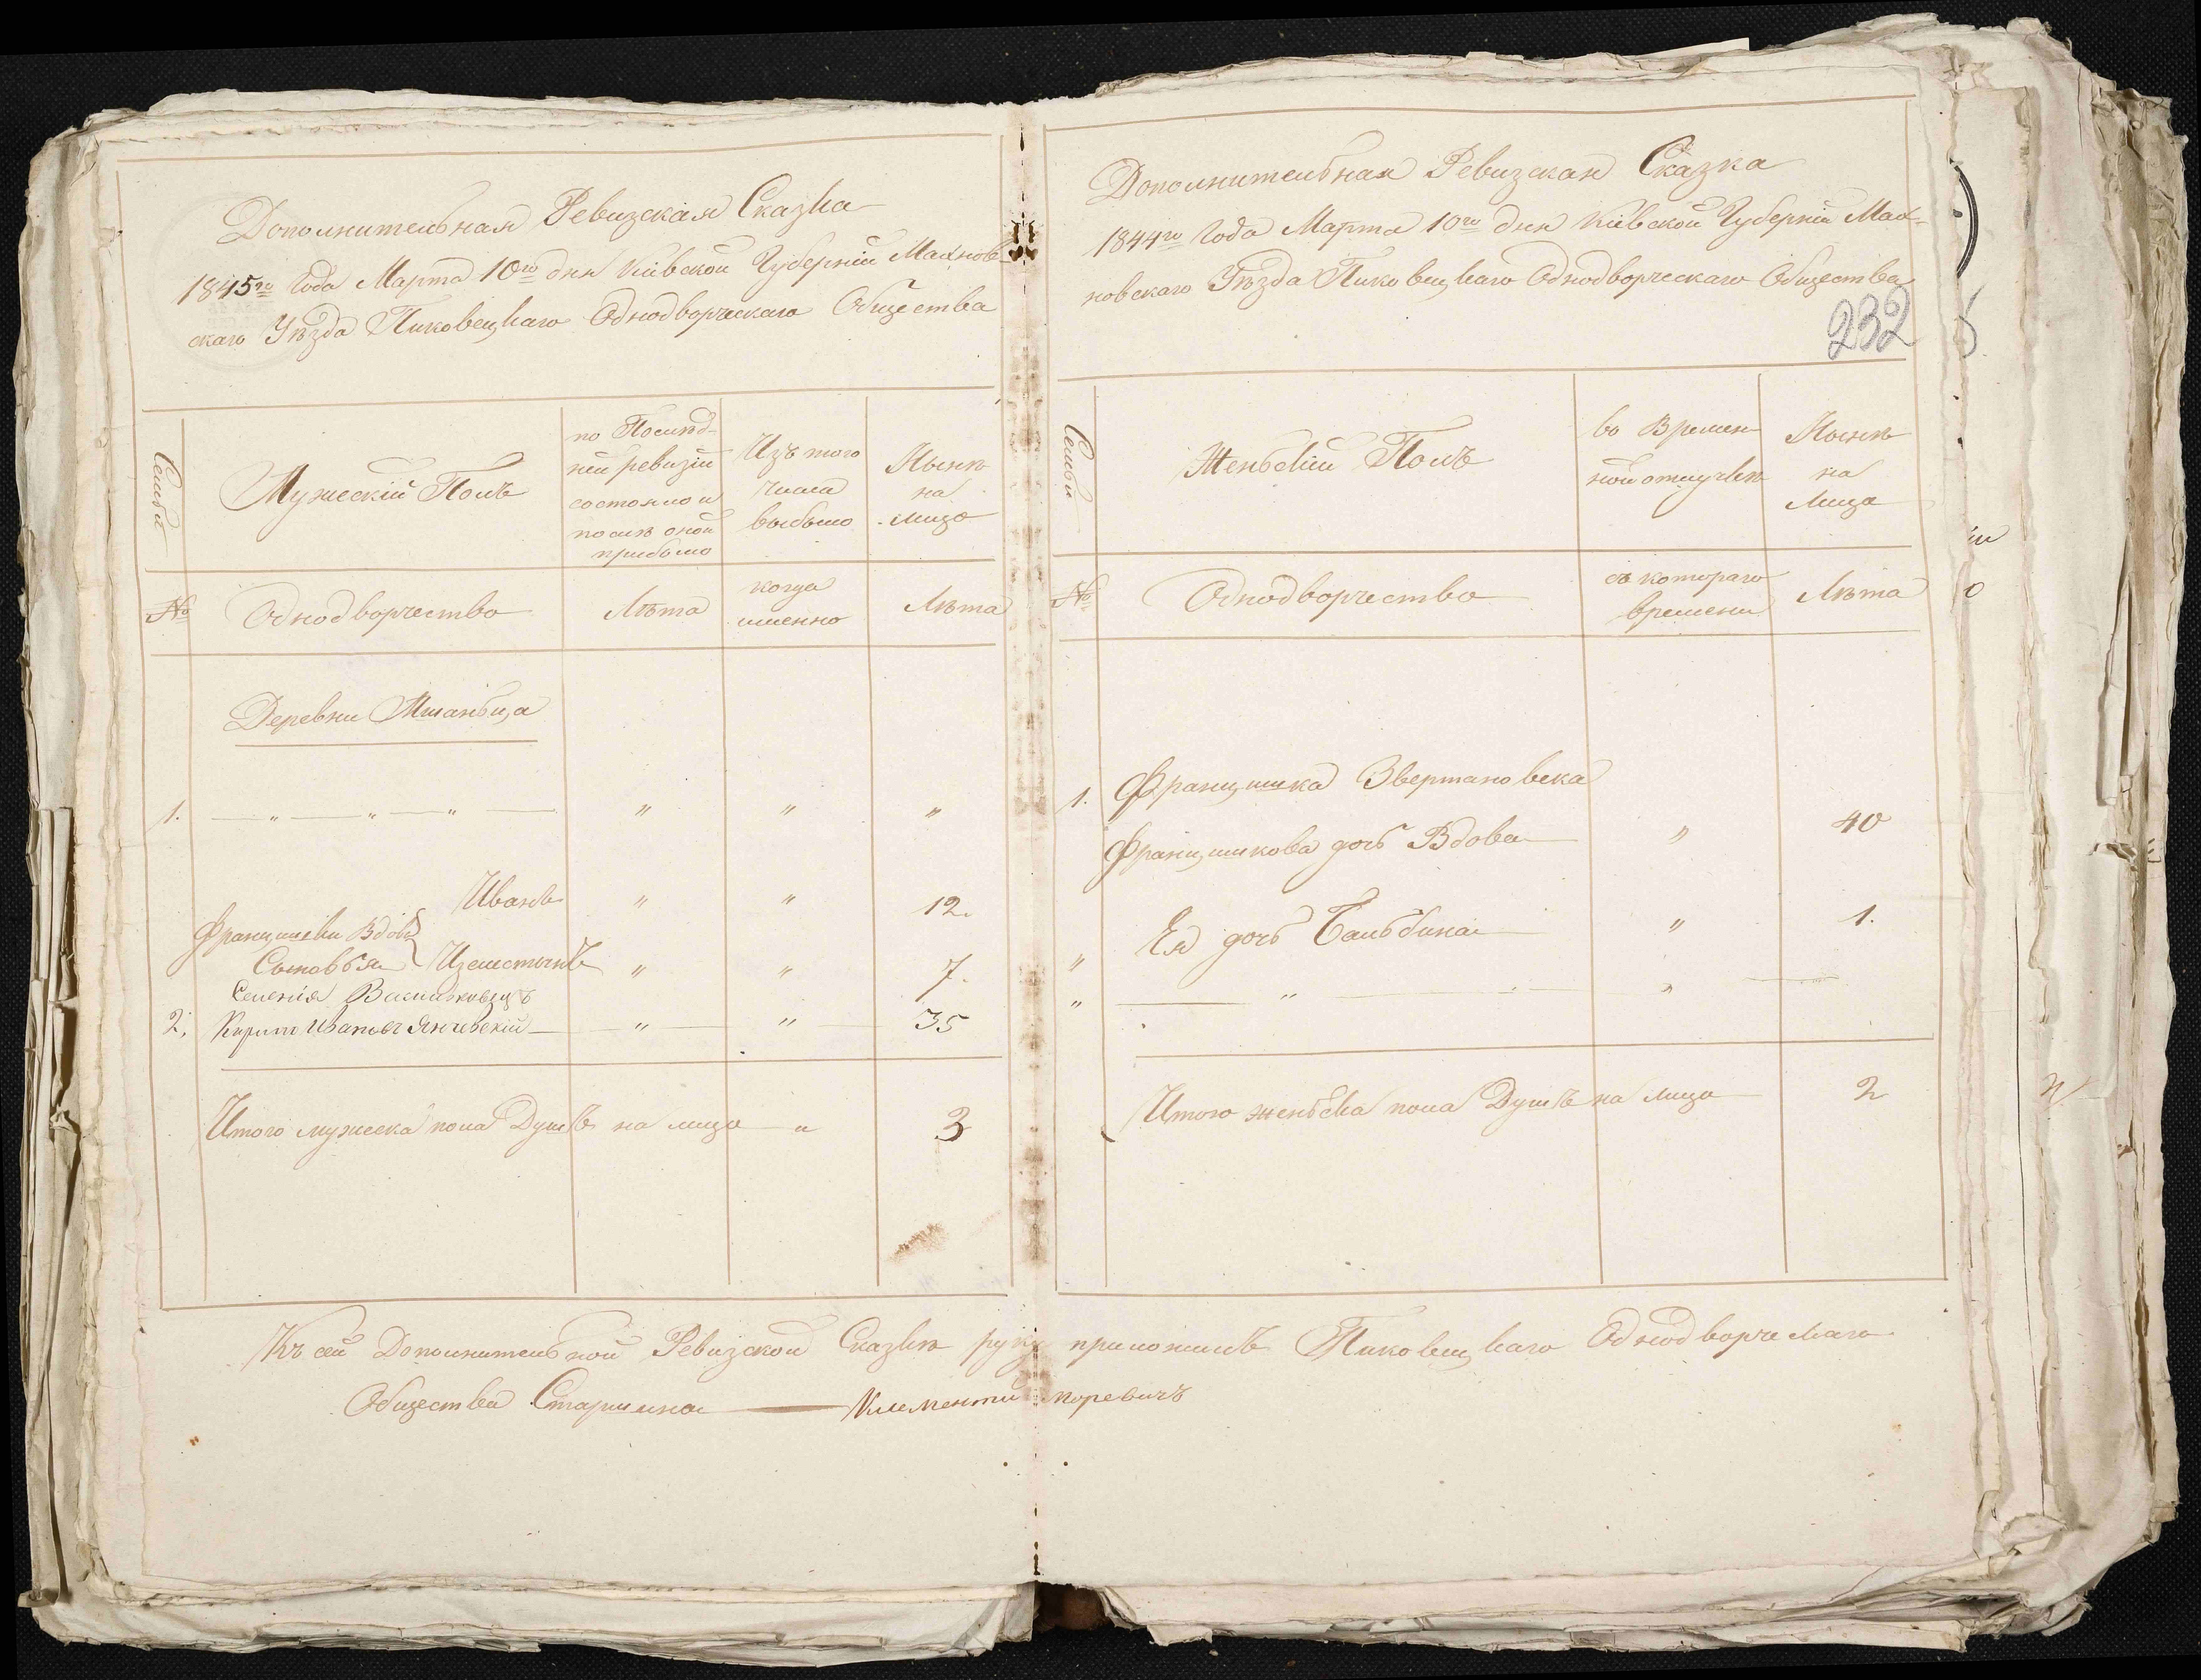 Дополнительная Ревизская Сказка
1845го Года Марта 10го дня Кіевской Губерніи Махнов-
скаго Уѣзда Пиковецкаго Однодворческаго Общества
Семьи
Мужескій Полъ
по Послѣд-
ней ревизіи
состояло и
послѣ оной
прибыло
Изъ того
числа
выбыло
Нынѣ
на
лицо
№
Однодворчество
Лѣта
когда
именно
Лѣта
Деревни Мшаньца
1. — „ — „ — „ — „ „ „
Иванъ „ „ 12.
Францишки Вдовы
Сыновья „ „ 7.
Селенія
2, Иванов Янчевскій — „ „ 35
Итого мужеска пола Душъ на лицо „ 3
Дополнительная Ревизская Сказка
1844го Года Марта 10го дня Кіевской Губерніи Мах-
новскаго Уѣзда Пиковецкаго Однодворческаго Общества
232
Семьи
Женьскій Полъ
во Времен
ной отлучкѣ
Нынѣ
на
Лицо
№
Однодворчество
съ котораго
времени
Лѣта
1. Францишка Звертановска
Францишкова дочь Вдова — „ 40
„ Ея дочь Бальбина — „ 1.
„ — „ — „ —
Итого женьска пола Душъ на лицо 2
Къ сей Дополнительной Ревизской Сказкѣ руку приложилъ Пиковецкаго Однодворческаго
Общества Старшина — Клементій